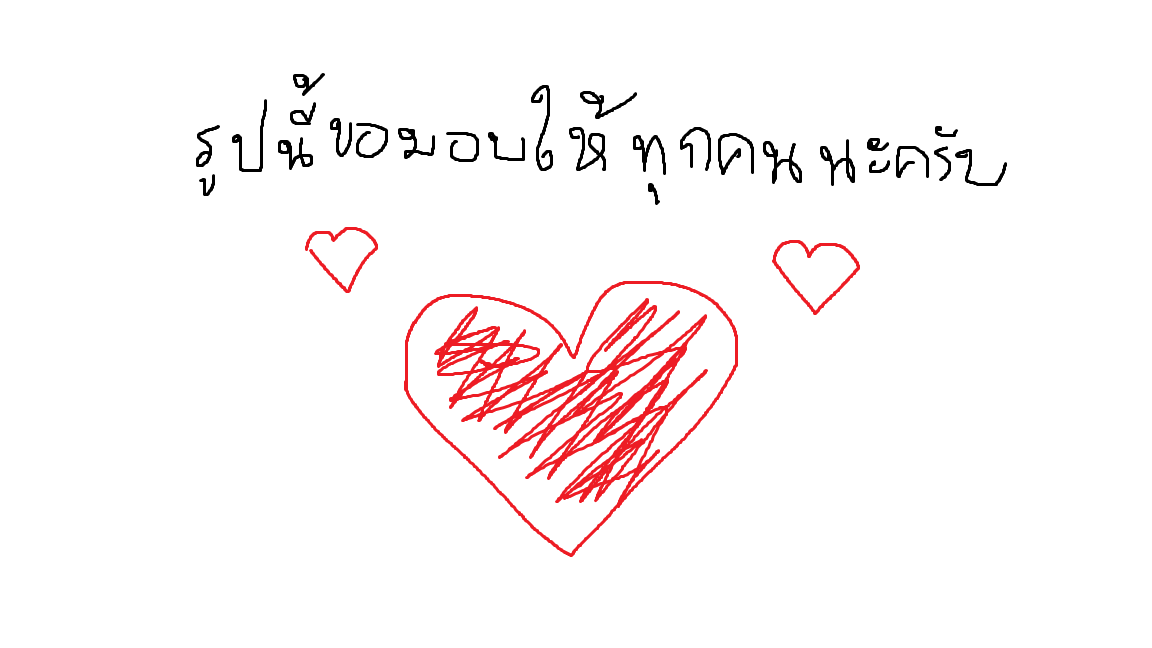 รูปนี้ขอมอบให้ทุกคนนะครับ